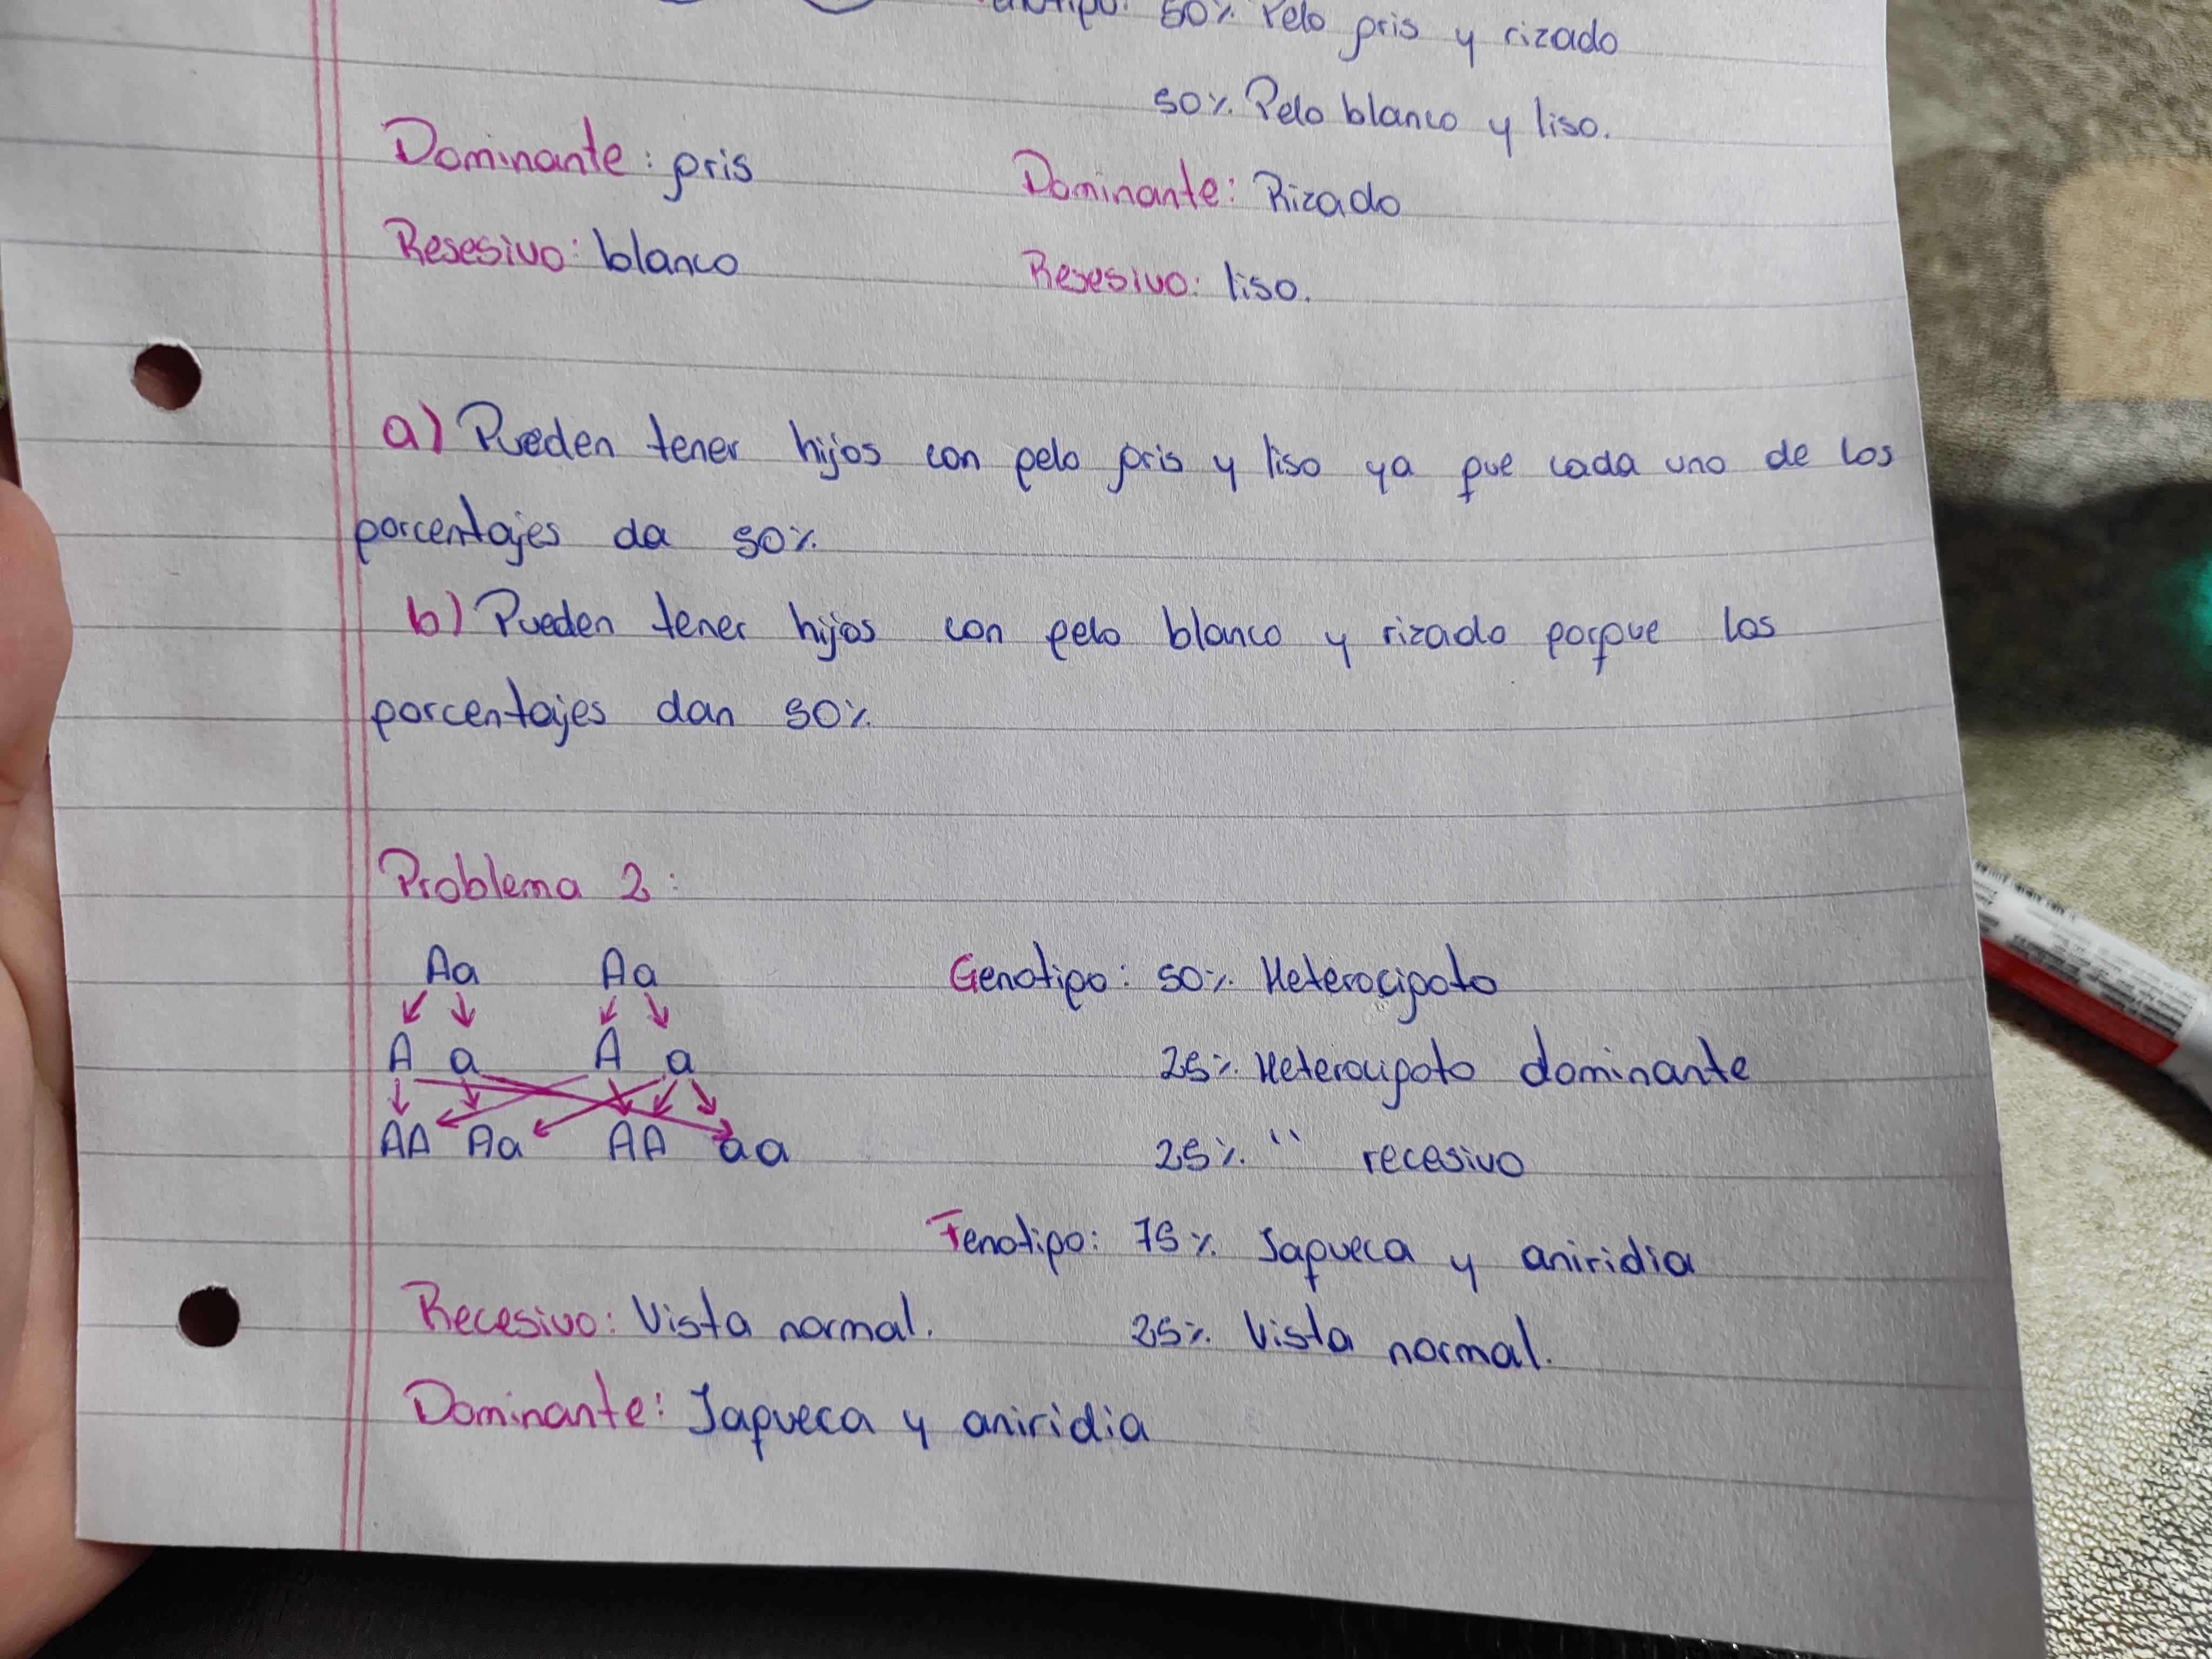 50% Pelo gris y rizado
50% Pelo blanco y liso.
Dominante: gris
Dominante: Rizado
Resesivo: blanco
Resesivo: liso.
a) Pueden tener hijos con pelo gris y liso ya que cada uno de los
porcentajes da 50%
b) Pueden tener hijos con pelo blanco y rizado porque los
porcentajes dan 50%
Problema 2:
Aa Aa
Genotipo: 50% Heterocigoto
A a A a
25% Heterocigoto dominante
AA Aa AA aa
25% " recesivo
Fenotipo: 75% Jaqueca y aniridia
Recesivo: Vista normal.
25% Vista normal.
Dominante: Jaqueca y aniridia